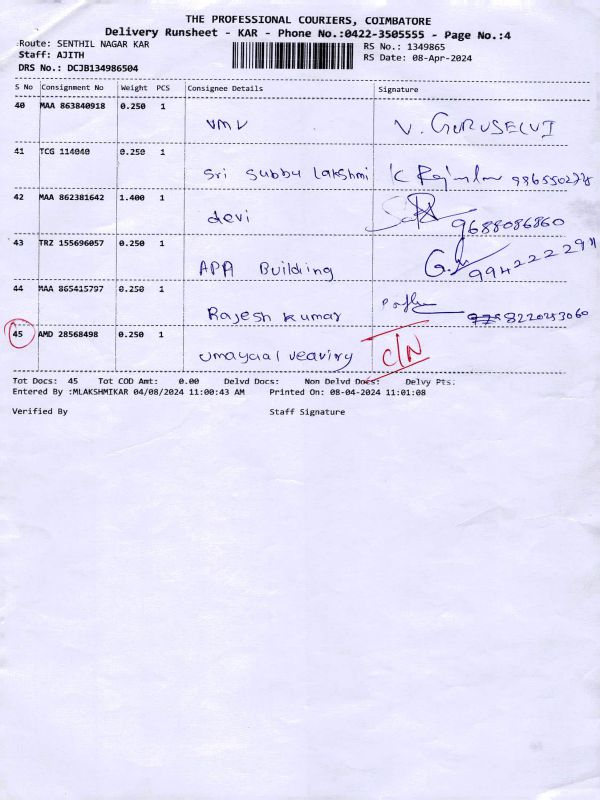 THE PROFESSIONAL COURIERS, COIMBATORE
Delivery Runsheet - KAR - Phone No.:0422-3505555 - Page No.:4
Route: SENTHIL NAGAR KAR RS No.: 1349865
Staff: AJITH RS Date: 08-Apr-2024
DRS No.: DCJB134986504
S No Consignment No Weight PCS Consignee Details Signature
40 MAA 863840918 0.250 1
VMV V. GURUSELVI
41 TCG 114040 0.250 1
Sri Subbu Lakshmi K
42 MAA 862381642 1.400 1
devi 9688086860
43 TRZ 155696057 0.250 1
APA Building
44 MAA 865415797 0.250 1
Rajesh kumar 8220253060
45 AMD 28568498 0.250 1
umayaal C/N
Tot Docs: 45 Tot COD Amt: 0.00 Delvd Docs: Non Delvd Docs: Delvy Pts:
Entered By :MLAKSHMIKAR 04/08/2024 11:00:43 AM Printed On: 08-04-2024 11:01:08
Verified By Staff Signature